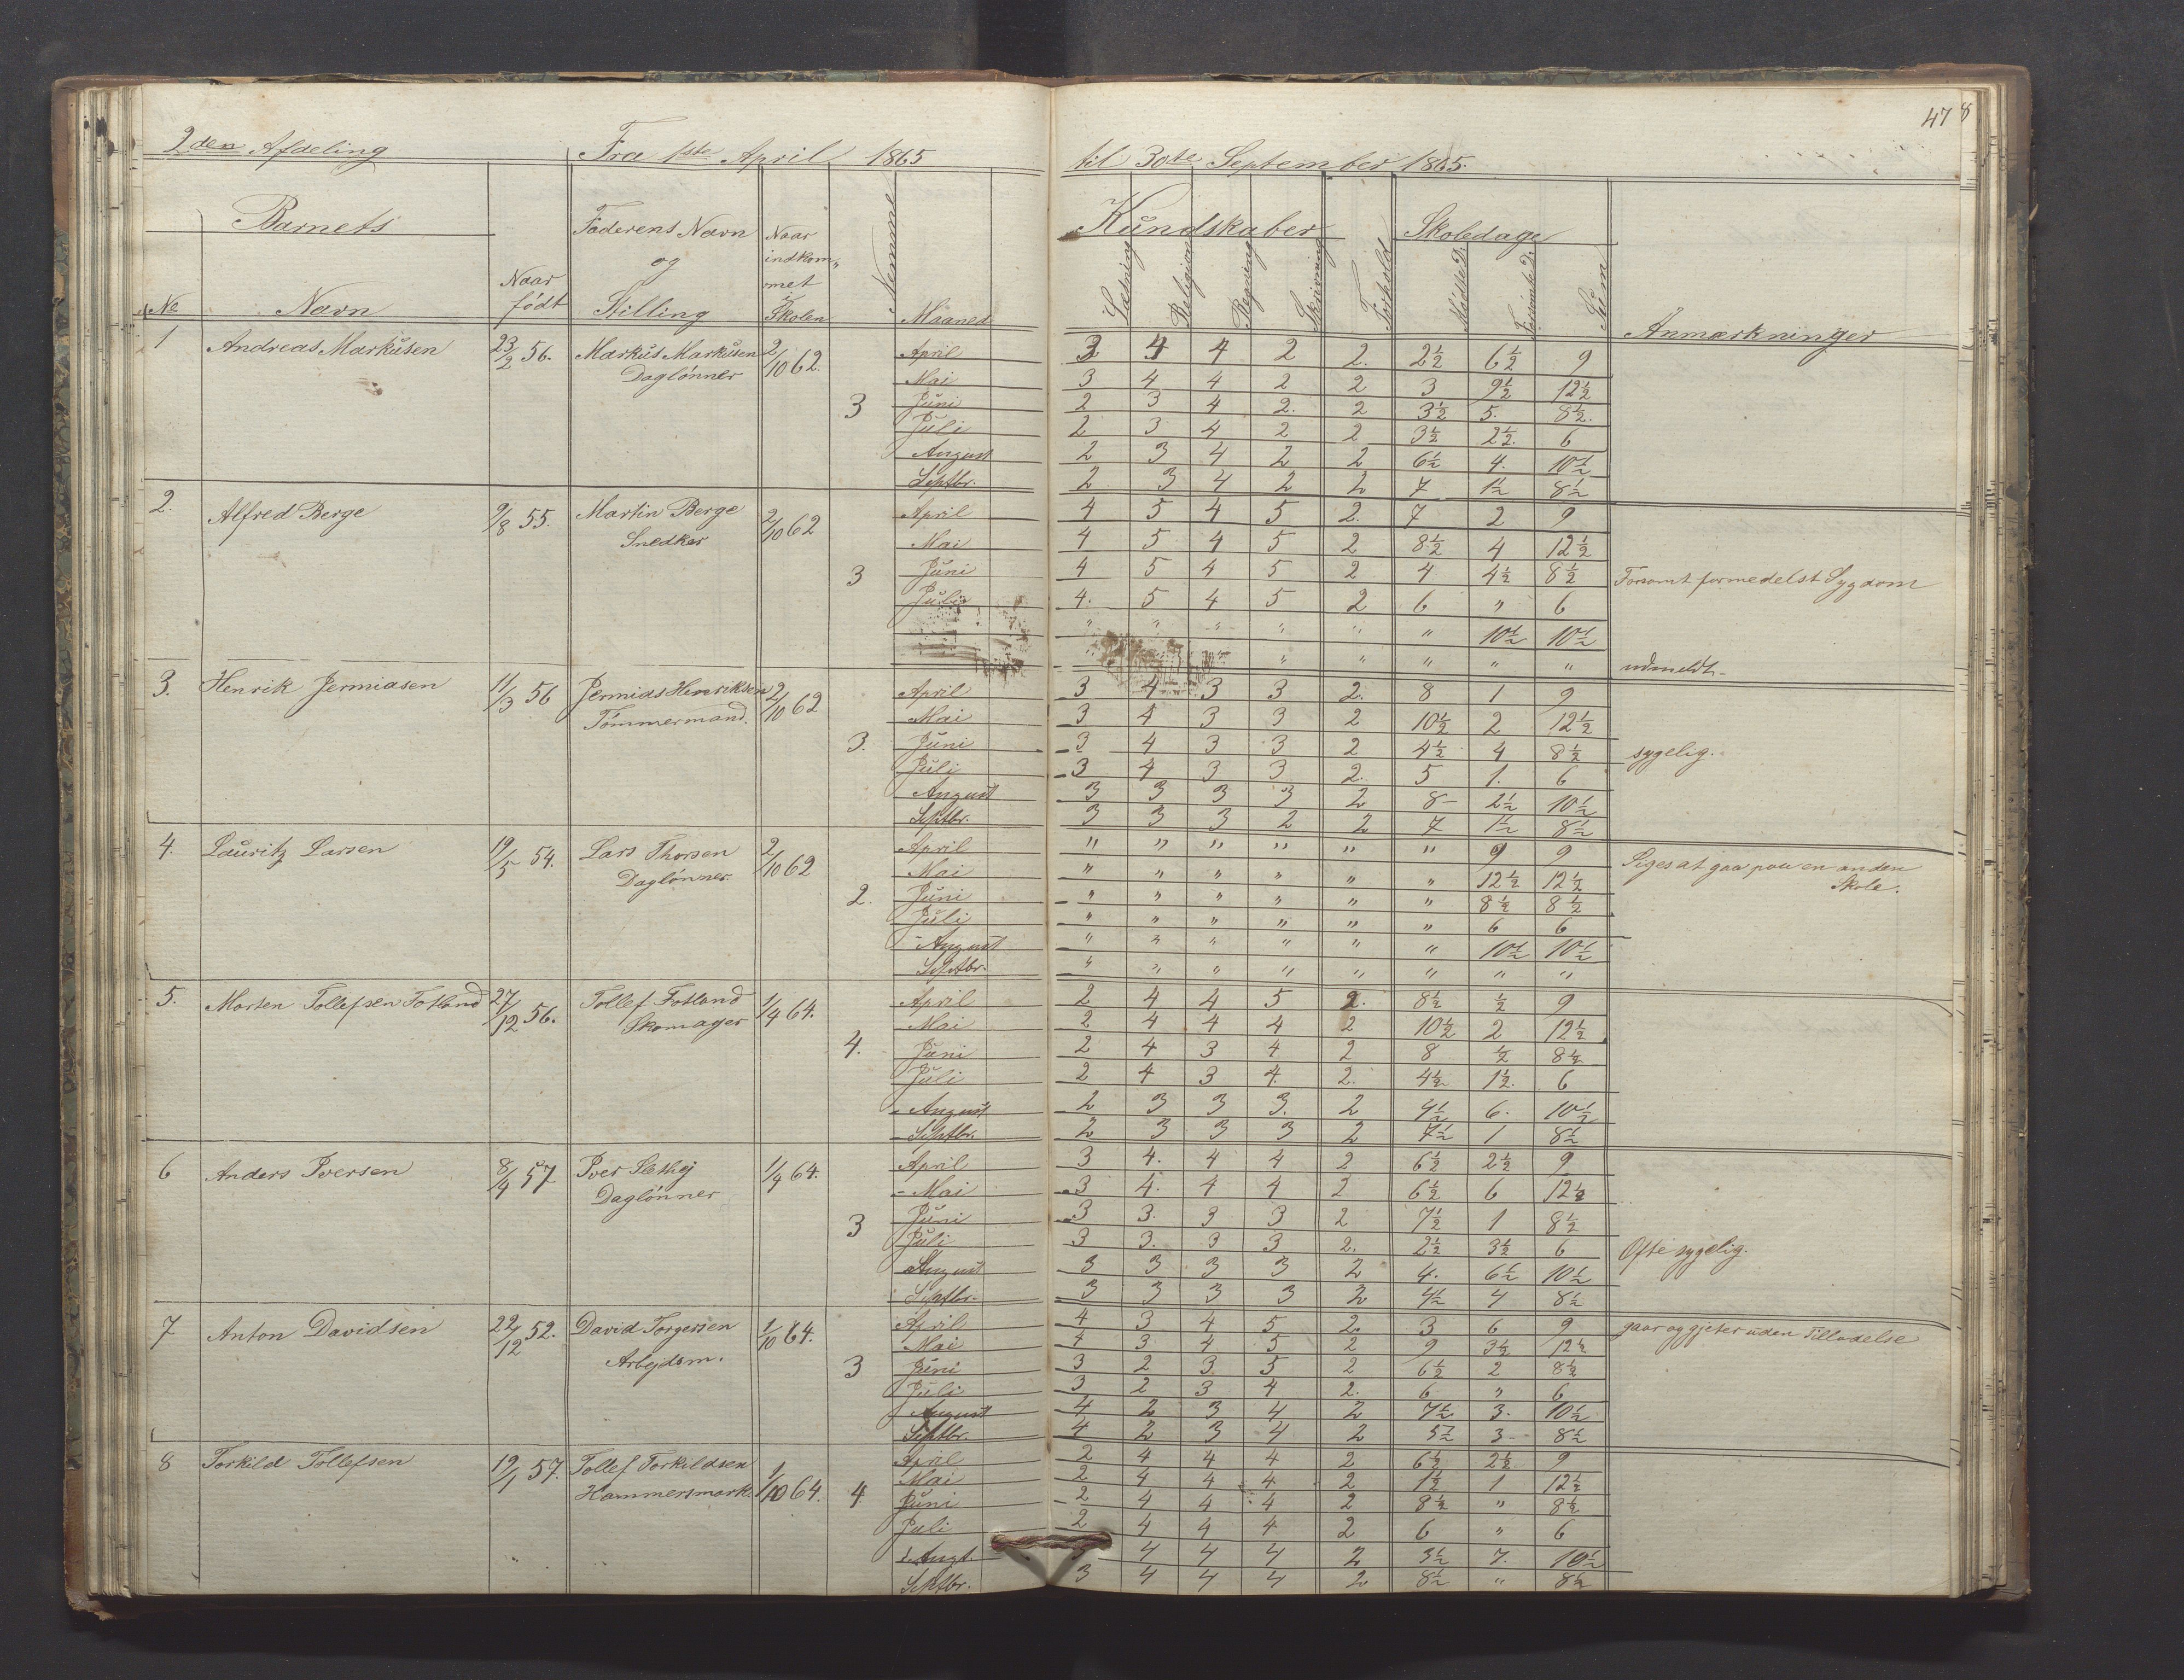 47
2den Afdeling Fra 1ste April 1865 til 30te September 1865.
Barnets Faderens Navn og Stilling Naar indkommet i Skolen Nemme Maaned Kundskaber Skoledage
No Navn Naar født Læsning Religion Regning Skrivning Forhold Mødte D. Forsømte D. Sum Anmærkninger
1 Andreas Markusen 23/2 56. Markus Markusen 2/10 62. April 3 4 4 2 2. 2½ 6½ 9
Daglønner Mai 3 4 4 2 2 3 9½ 12½
3 Juni 2 3 4 2. 2 3½ 5. 8½.
Juli 2 3 4 2 2 3½ 2½. 6
August 2 3 4 2 2 6½ 4. 10½
Septbr. 2 3 4 2 2 7 1½ 8½
2. Alfred Berge 9/8 55. Martin Berge 2/10 62 April 4 5 4 5 2. 7 2 9
Snedker Mai 4 5 4 5 2 8½ 4 12½
3 Juni 4 5 4 5 2 4 4½ 8½ Forsømt formedelst Sygdom
Juli 4. 5 4 5 2 6 " 6
" " " " " " 10½ 10½
" " " " " udmeldt
3. Henrik Jermiasen 11/3 56 Jermias Henriksen 2/10 62 April 3 4 3 3 2. 8 1 9
Tømmermand. Mai 3 4 3 3 2 10½ 2 12½
3. Juni 3 4 3 3 2 4½ 4 8½ sygelig.
Juli 3 4 3 3 2. 5 1. 6
August 3 3 3 3 2 8 2½ 10½
Septbr. 3 3 3 2 2 7 1½ 8½
4. Lauritz Larsen 19/5 54. Lars Thorsen 2/10 62 April " " " " " " 9 9 Siges at gaa paa en anden
Daglønner. Mai " " " " " " 12½ 12½ Skole.
2. Juni " " " " " " 8½ 8½
Juli " " " " " " 6 6
August " " " " " " 10½ 10½
Septbr. " " " " " " " "
5. Morten Tollefsen Fotland 27/12 56. Tollef Fotland 1/4 64. April 2 4 4 5 2. 8½ ½ 9
Skomager Mai 2 4 4 4 2 10½ 2 12½
4. Juni 2 4 3 4 2 8 ½ 8½
Juli 2 4 3 4. 2. 4½ 1½. 6
August 2 3 3 3. 2 4½ 6. 10½
Septbr. 2 3 3 3 2 7½ 1 8½
6 Anders Iversen 8/4 57 Iver 1/4 64. April 3 4. 4 4 2 6½ 2½ 9
Daglønner Mai 3 4. 4 4 2 6½ 6 12½
3 Juni 3 3. 3 3 2 7½ 1 8½
Juli 3 3. 3 3 2. 2½ 3½ 6 Ofte sygelig.
August 3 3 3 3 2 4. 6½ 10½
Septbr. 3 3 3 3 2 4½ 4 8½
7 Anton Davidsen 22/12 52. David Torgersen 1/10 64. April 4 3 4 5 2. 3 6 9 gaar og gjeter uden Tilladelse
Arbejdsm. Mai 4 3 4 5 2 9 3½ 12½
3 Juni 3 2 3 5 2 6½ 2 8½
Juli 3 2 3 4 2. 6 " 6
August 4 2 3 4 2 7½ 3. 10½
Septbr. 4 2 3 4 2 5½ 3 8½
8 Torkild Tollefsen 19/1 57. Tollef Torkildsen 1/10 64. April 2 4 4 4 2 6½ 2½ 9
Hammersmark. 4 Mai 2 4 4 4 2 1½ 1 12½
Juni 2 4 4 4 2 8½ " 8½
Juli 2 4 4 4 2 6 " 6
Augt. 4 4 4 2 3½ 7. 10½
Septbr. 3 4 4 4 2 8½ " 8½